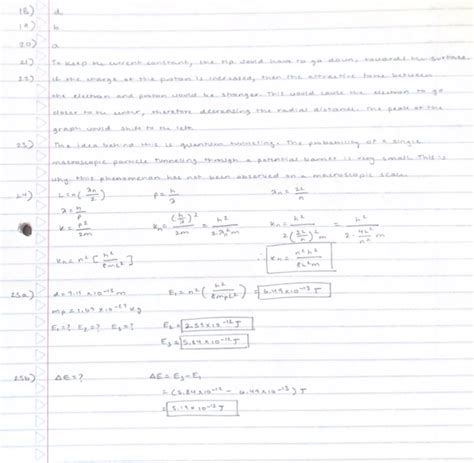 18) d
19) b
20) a
21) To keep the current constant, the tip would have to go down, towards the surface.
22) If the charge of the proton is increased, then the attractive force between
the electron and proton would be stronger. This would cause the electron to go
closer to the center, therefore decreasing the radial distance. The peak of the
graph would shift to the left.
23) The idea behind this is quantum tunneling. The probability of a single
macroscopic particle tunneling through a potential barrier is very small. This is
why this phenomenon has not been observed on a macroscopic scale.
24) L = n(λn/2) p = h/λ λn = 2L/n
λ = h/p
K = p²/2m Kn = (h/λ)²/2m = h²/2λn²m Kn = h²/2(2L/n)²m = h²/2·4L²/n² m
Kn = n²[h²/8mL²] ∴ Kn = n²h²/8L²m
25a) d = 7.1 x 10⁻¹⁵ m E1 = n²(h²/8mpL²) = 6.49 x 10⁻¹³ J
mp = 1.67 x 10⁻²⁷ kg
E1 = ? E2 = ? E3 = ? E2 = 2.59 x 10⁻¹² J
E3 = 5.84 x 10⁻¹² J
25b) ΔE = ? ΔE = E3 - E1
= (5.84 x 10⁻¹² - 6.49 x 10⁻¹³) J
= 5.19 x 10⁻¹² J